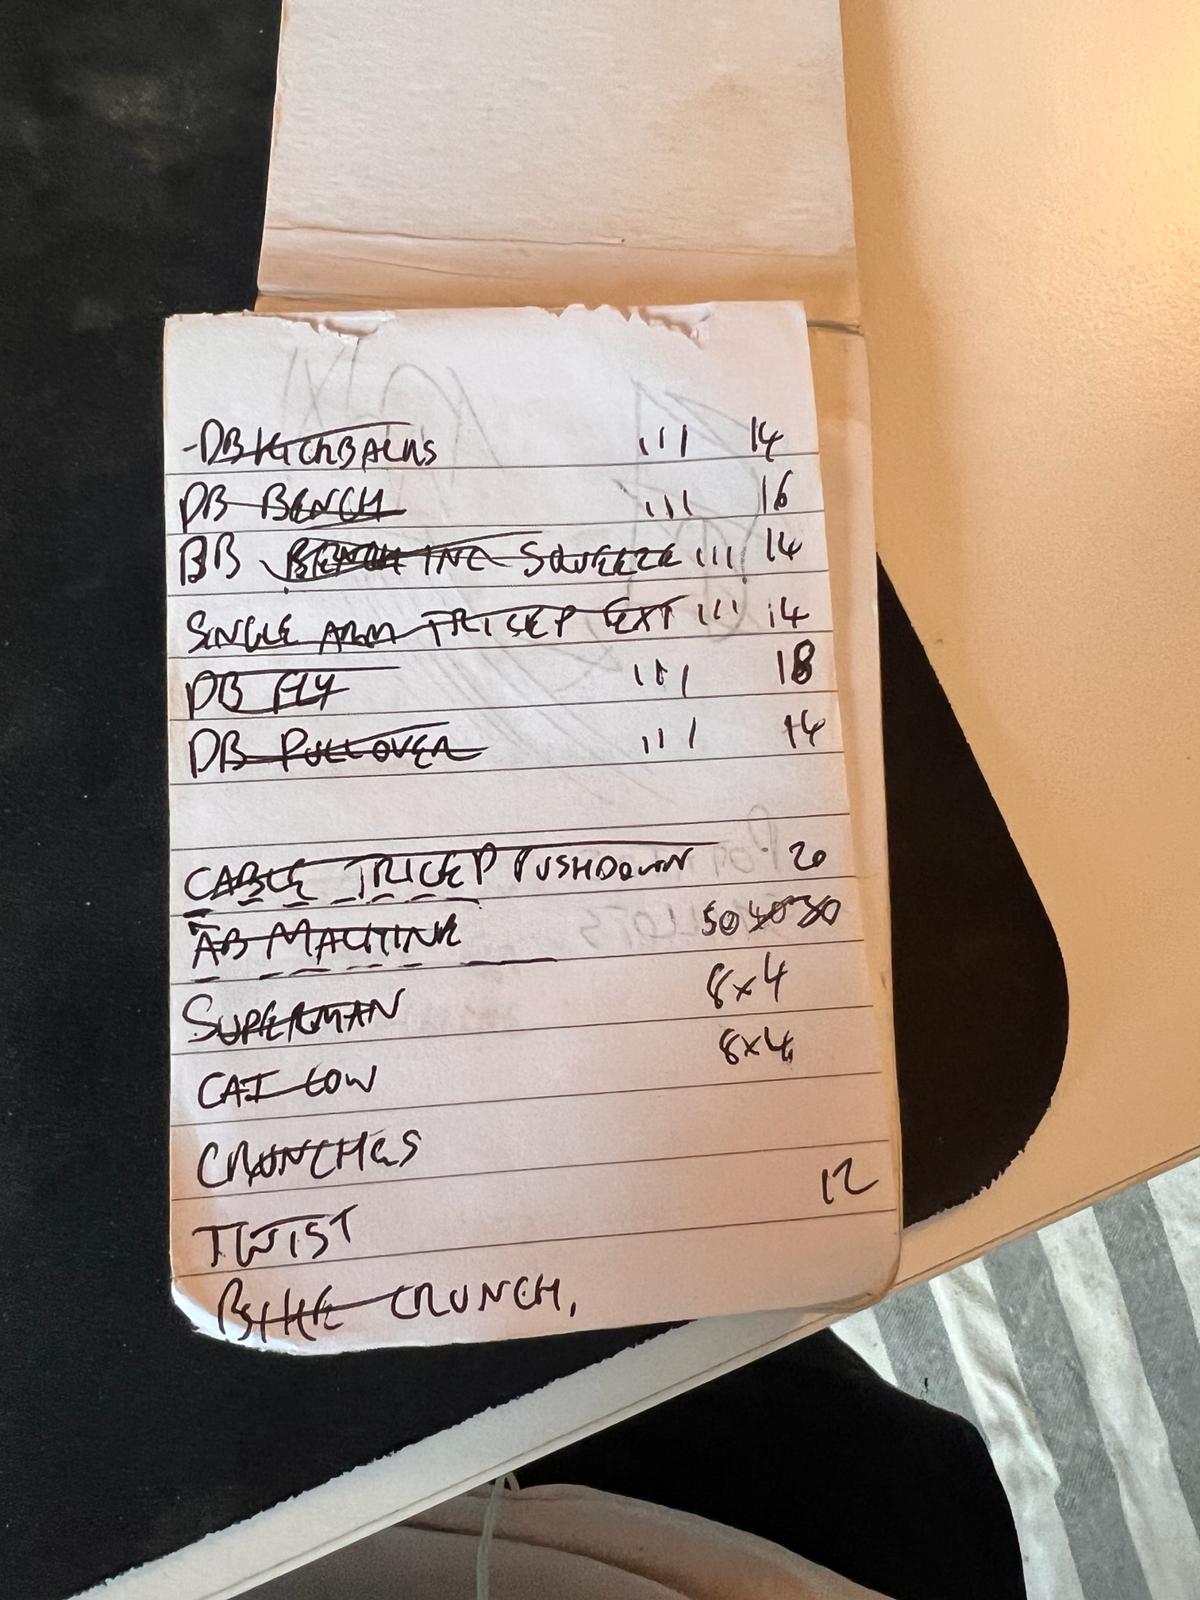 -DB KICKBACKS ||| 14
DB BENCH ||| 16
BB INC SQUEEZE ||| 14
SINGLE ARM TRICEP EXT ||| 14
DB FLY ||| 18
DB PULLOVER ||| 14
CABLE TRICEP PUSHDOWN 20
AB MACHINE 50 40 30
SUPERMAN 8x4
CAT COW 8x4
CRUNCHES
TWIST 12
BIKE CRUNCH,